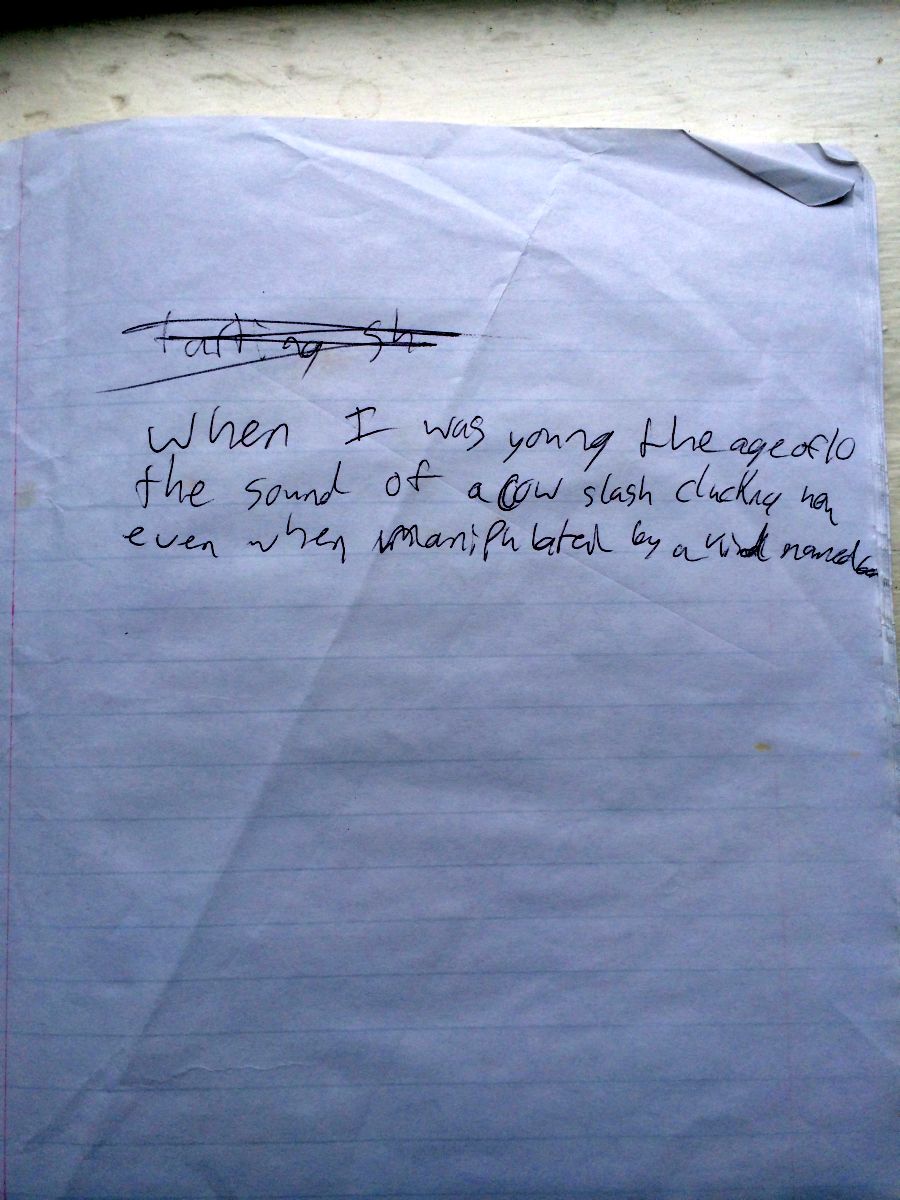 When I was young the age of 10
the sound of a cow slash clucking hen
even when manipulated by a named